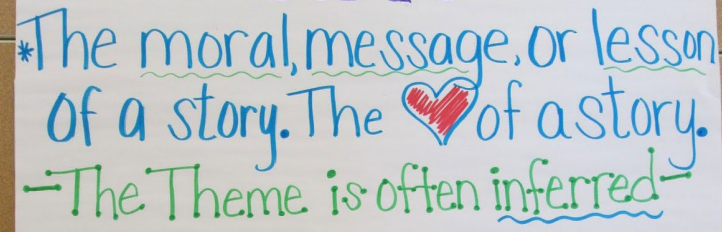 *The moral, message, or lesson
of a story. The ❤ of a story.
-The Theme is often inferred-